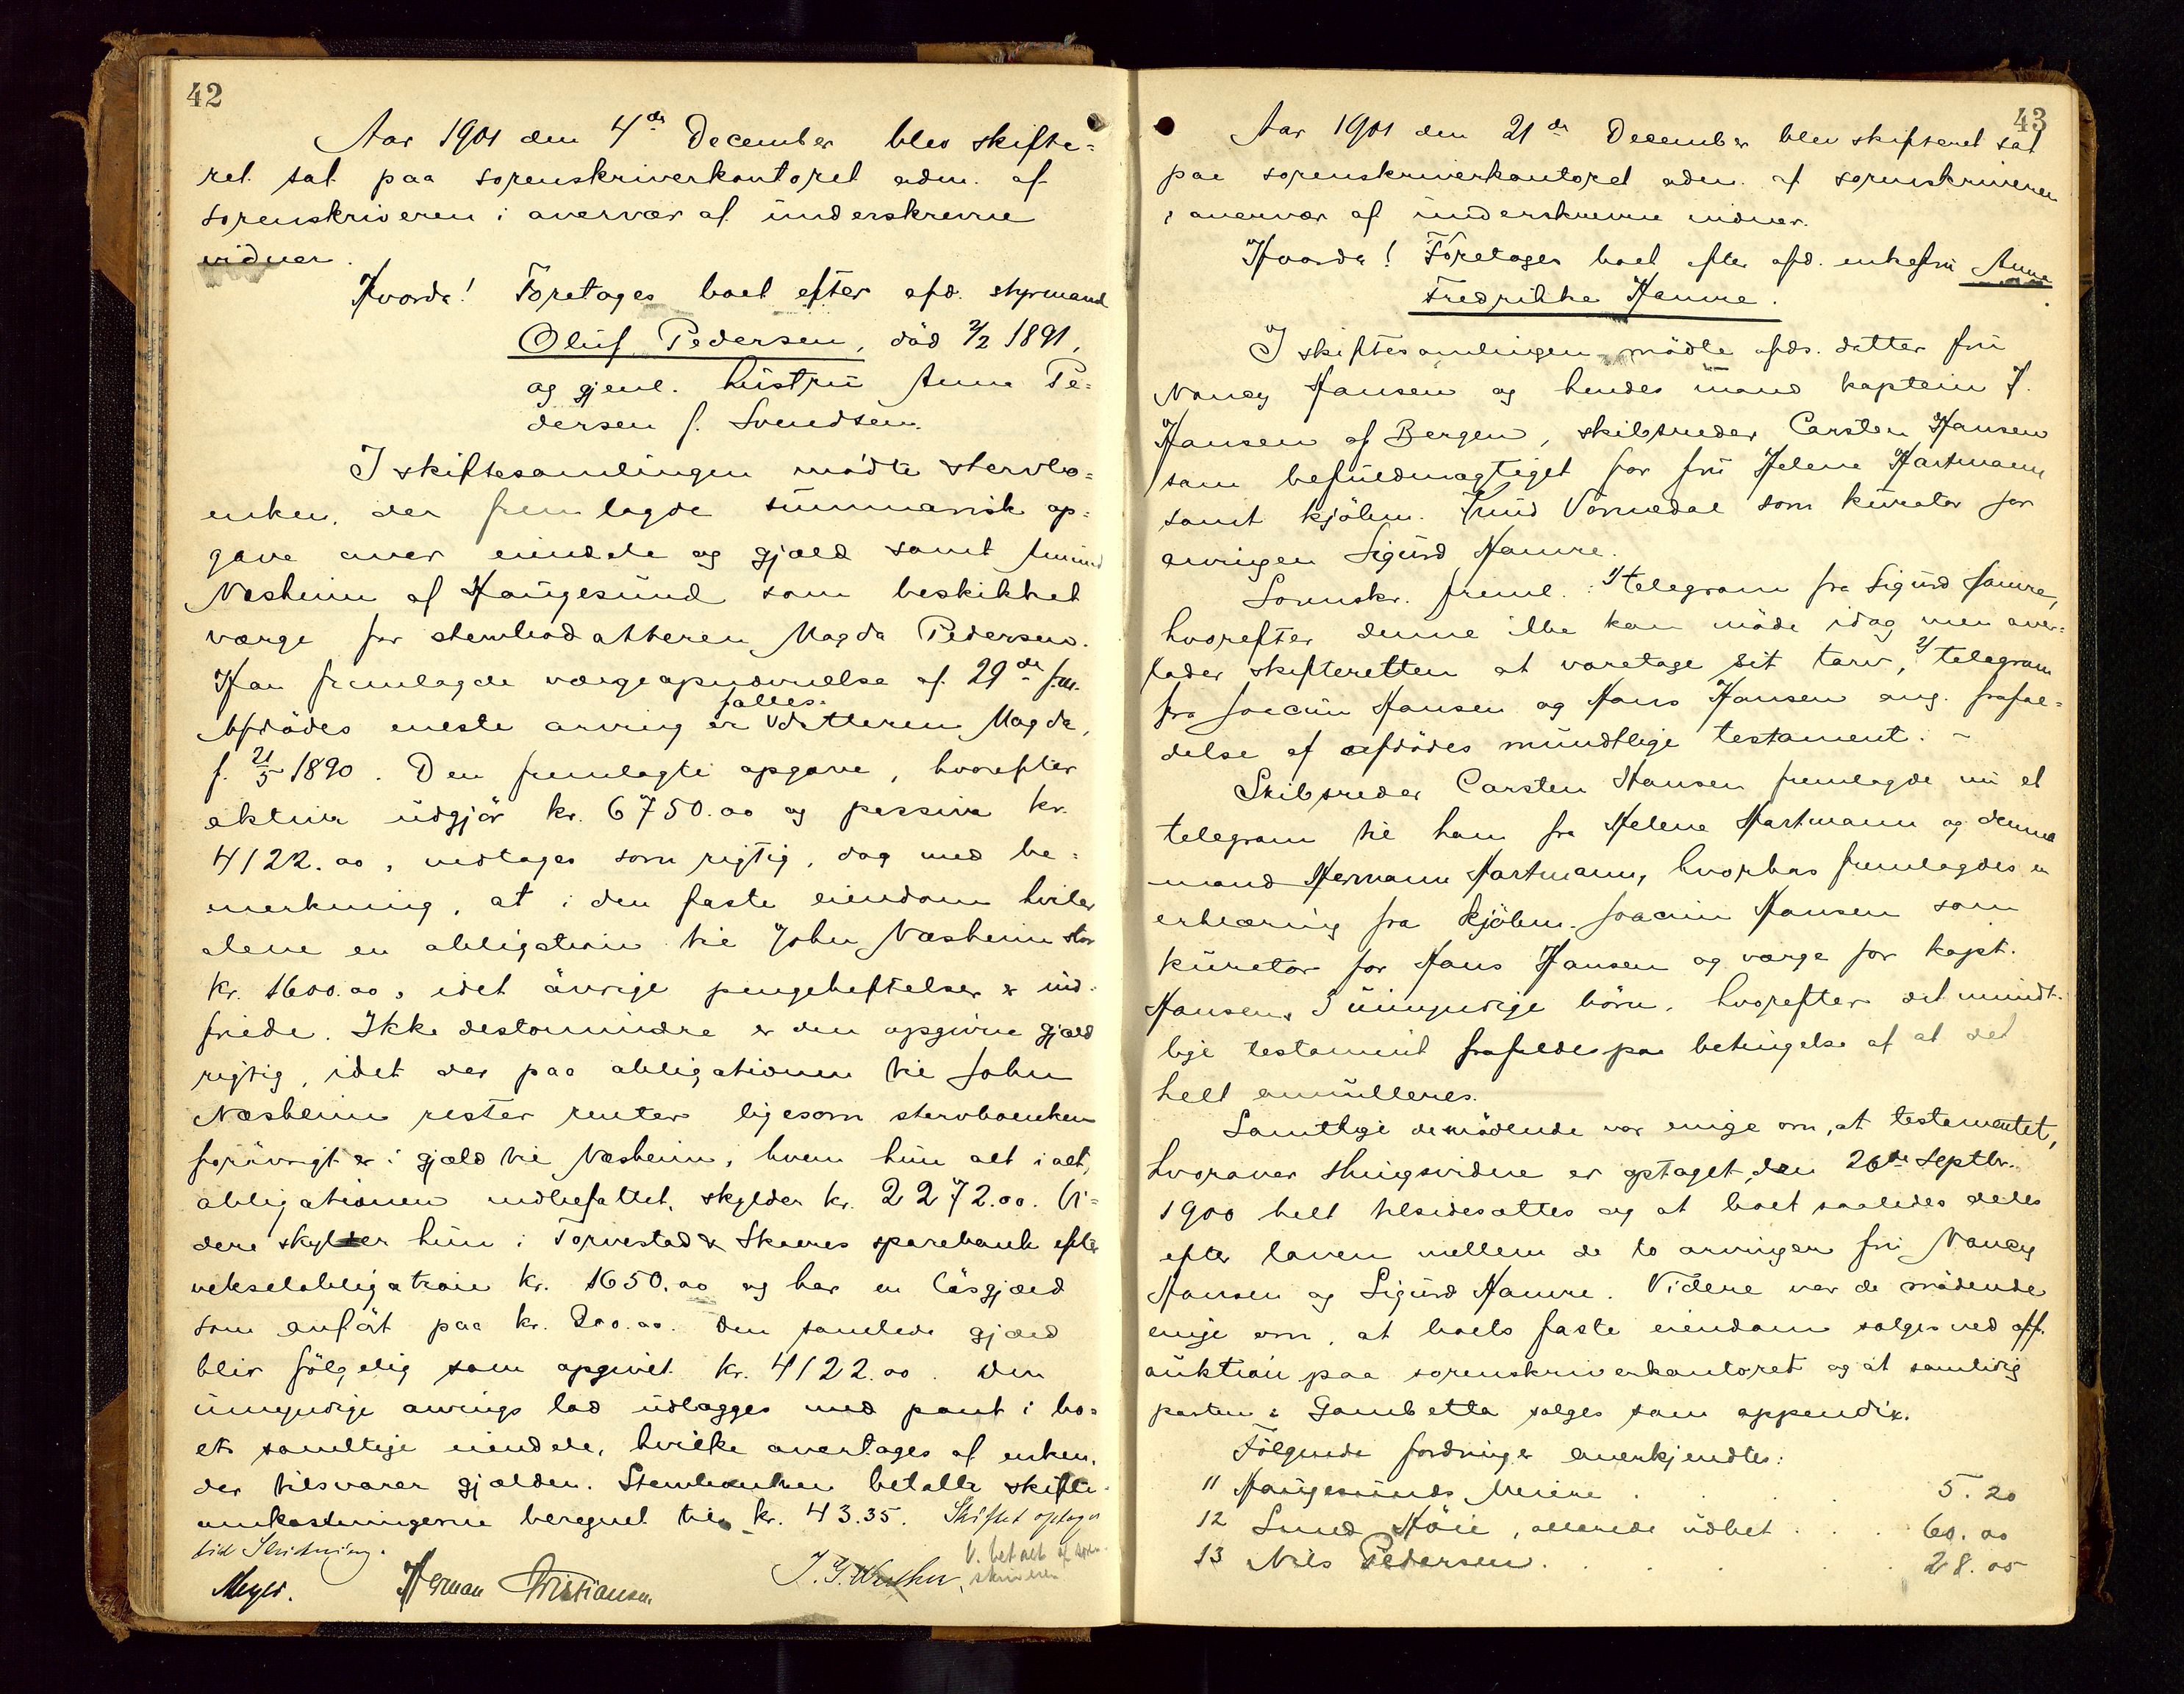 42
Aar 1901 den 4de December blev skifte-
ret sat paa sorenskriverkontoret adm. af
sorenskriveren i overvær af underskrevne
vidner.
Hvorda! Foretages boet efter afd. styrmand
Oluf Pedersen, död 2/2 1891,
og gjenl. hustru Anna Pe-
dersen f. Svendsen.
I skiftesamlingen mödte stervbo-
enken, der fremlagde summarisk op-
gave over eiendele og gjæld samt Amund
Næsheim af Haugesund som beskikket
værge for stervbodatteren Magda Pedersen.
Han fremlagde værgeopnævnelse af 29de f.m.
Afdödes eneste arving er fælles datteren Magda,
f. 21/5 1890. Den fremlagte opgave, hvorefter
aktiva udgjör kr. 6750.00 og passiva kr.
4122.00, vedtages som rigtig, dog med be-
merkning, at i den faste eiendom hviler
alene en obligation til John Næsheim stor
kr. 1600.00, idet övrige pengeheftelser er ind-
friede. Ikke destomindre er den opgivne gjæld
rigtig, idet der paa obligationen til John
Næsheim rester renter ligesom stervboenken
forövrigt er i gjæld til Næsheim, hvem hun alt i alt,
obligationen indbefattet, skylder kr. 2272.00. Vi-
dere skylder hun i Torvestad & Skaares sparebank efter
vekselobligation kr. 1650.00 og har en lösgjæld
som anfört paa kr. 200.00. Den samlede gjæld
blir fölgelig som opgivet kr. 4122.00. Den
umyndige arvings lod udlægges med pant i bo-
ets samtlige eiendele, hvilke overtages af enken,
der tilsvarer gjælden. Stervboenken betalte skifte-
omkostningerne beregnet til kr. 43.35. Skiftet optages
til Slutning.
V. betalt af soren-
skriveren
Meyer. Herman Christiansen.
43
Aar 1901 den 21de December blev skifteret sat
paa sorenskriverkontoret adm. af sorenskriveren
i overvær af underskrevne vidner.
Hvorda! Foretages boet efter afd. enkefru Anna
Fredrikke Hamre.
I skiftesamlingen mödte afds. datter fru
Nancy Hansen og hendes mand kaptein J.
Hansen af Bergen, skibsreder Carsten Hansen
som befuldmægtiget for fru Helene Hartmann
samt kjöbm. Knud Vormedal som kurator for
arvingen Sigurd Hamre.
Sorenskr. freml.: 1/ telegram fra Sigurd Hamre,
hvorefter denne ikke kan möde idag men over-
lader skifteretten at varetage sit tarv, 2/ telegram
fra Joacim Hansen og Hans Hansen ang. frafal-
delse af afdödes mundtlige testament. –
Skibsreder Carsten Hansen fremlagde nu et
telegram til ham fra Helene Hartmann og dennes
mand Hermann Hartmann, hvorhos fremlagdes en
erklæring fra kjöbm. Joacim Hansen som
kurator for Hans Hansen og værge for kapt.
Hansens 5 umyndige börn, hvorefter det mundt-
lige testament frafaldes paa betingelse af at det
helt annulleres.
Samtlige de mödende var enige om, at testamentet,
hvorover thingsvidne er optaget den 26de Septbr.
1900 helt tilsidesættes og at boet saaledes deles
efter loven mellem de to arvinger fru Nancy
Hansen og Sigurd Hamre. Videre var de mödende
enige om, at boets faste eiendom sælges ved off.
auktion paa sorenskriverkontoret og at samtidig
parten i Gambetta sælges som appendix.
Fölgende fordringer anerkjendtes:
11 Haugesunds Meieri . . . 5.20
12 Svend Höie, allerede udbet. . . . 60.00
13 Nils Pedersen . . . . 28.05